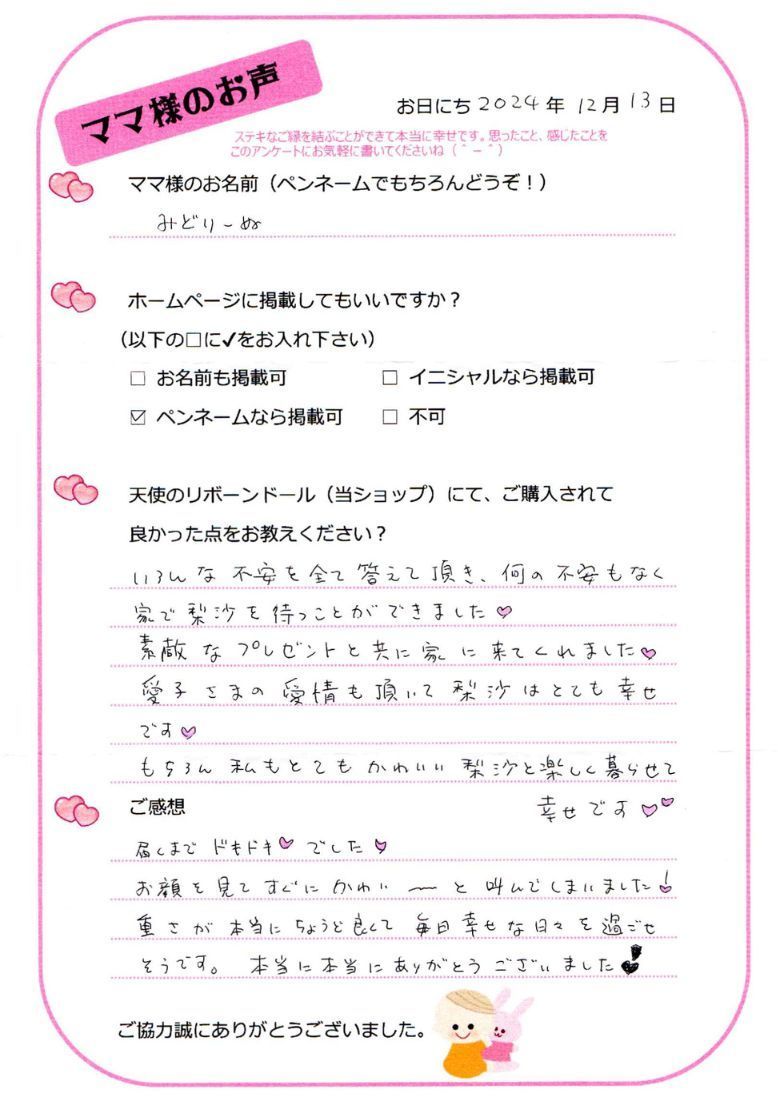 ママ様のお声
お日にち 2024年 12月 13日
ステキなご縁を結ぶことができて本当に幸せです。思ったこと、感じたことを
このアンケートにお気軽に書いてくださいね（＾－＾）
ママ様のお名前（ペンネームでもちろんどうぞ！）
みどりーぬ
ホームページに掲載してもいいですか？
（以下の□に✓をお入れ下さい）
□ お名前も掲載可 □ イニシャルなら掲載可
☑ ペンネームなら掲載可 □ 不可
天使のリボーンドール（当ショップ）にて、ご購入されて
良かった点をお教えください？
いろんな不安を全て答えて頂き、何の不安もなく
家で梨沙を待つことができました♥
素敵なプレゼントと共に家に来てくれました♥
愛子さまの愛情も頂いて梨沙はとても幸せ
です♥
もちろん私もとてもかわいい梨沙と楽しく暮らせて
幸せです♥♥
ご感想
届くまでドキドキ♥でした♥
お顔を見てすぐにかわい〜と叫んでしまいました！
重さが本当にちょうど良くて毎日幸せな日々を過ごせ
そうです。 本当に本当にありがとうございました
ご協力誠にありがとうございました。